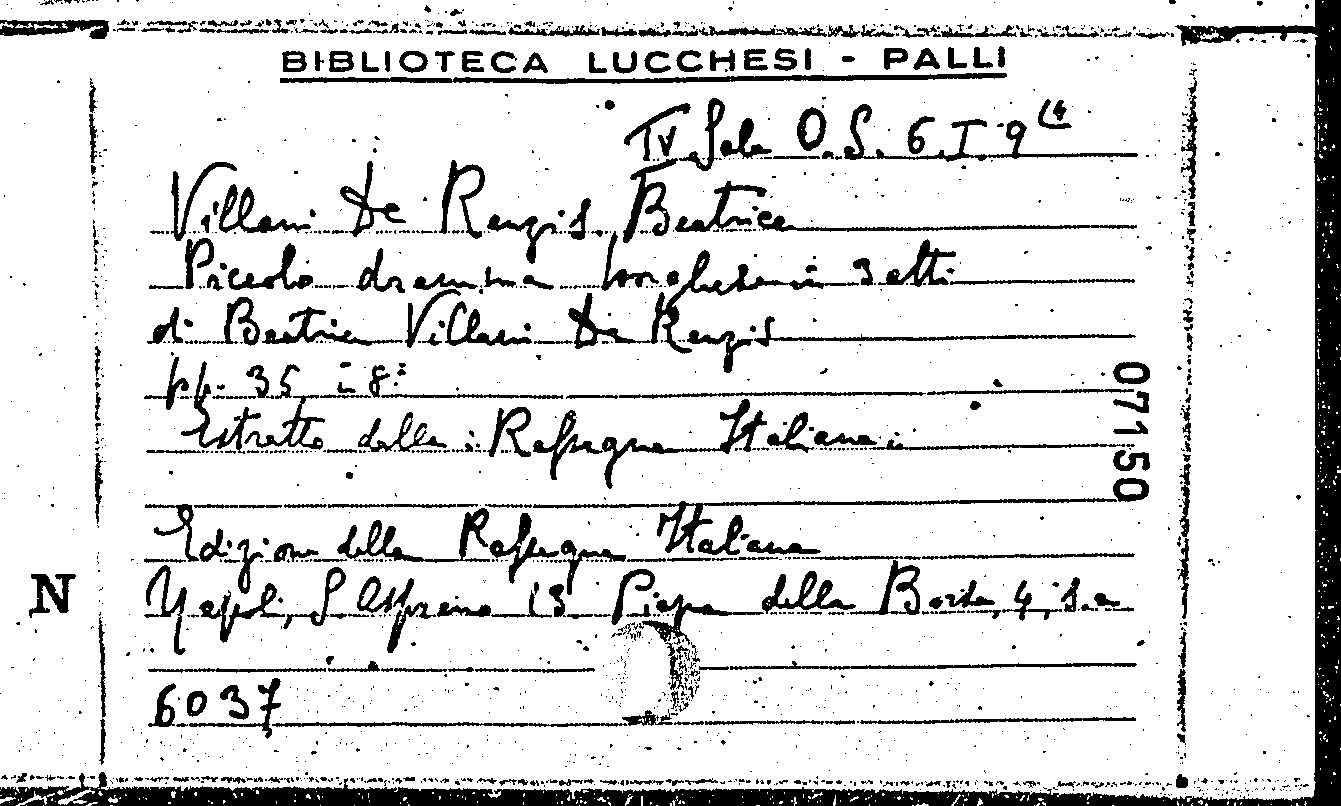 BIBLIOTECA LUCCHESI - PALLI
IV Sala O.S. 6.I.9 (4
Villani De Renzis Beatrice
Piccolo dramma borghese in 3 atti
di Beatrice Villani De Renzis
pp. 35 in 8°
Estratto dalla: Rassegna Italiana:
07150
Edizione della Rassegna Italiana
N
Napoli, S. Aspreno 13. Piazza della Borsa, 4, s.a
6037